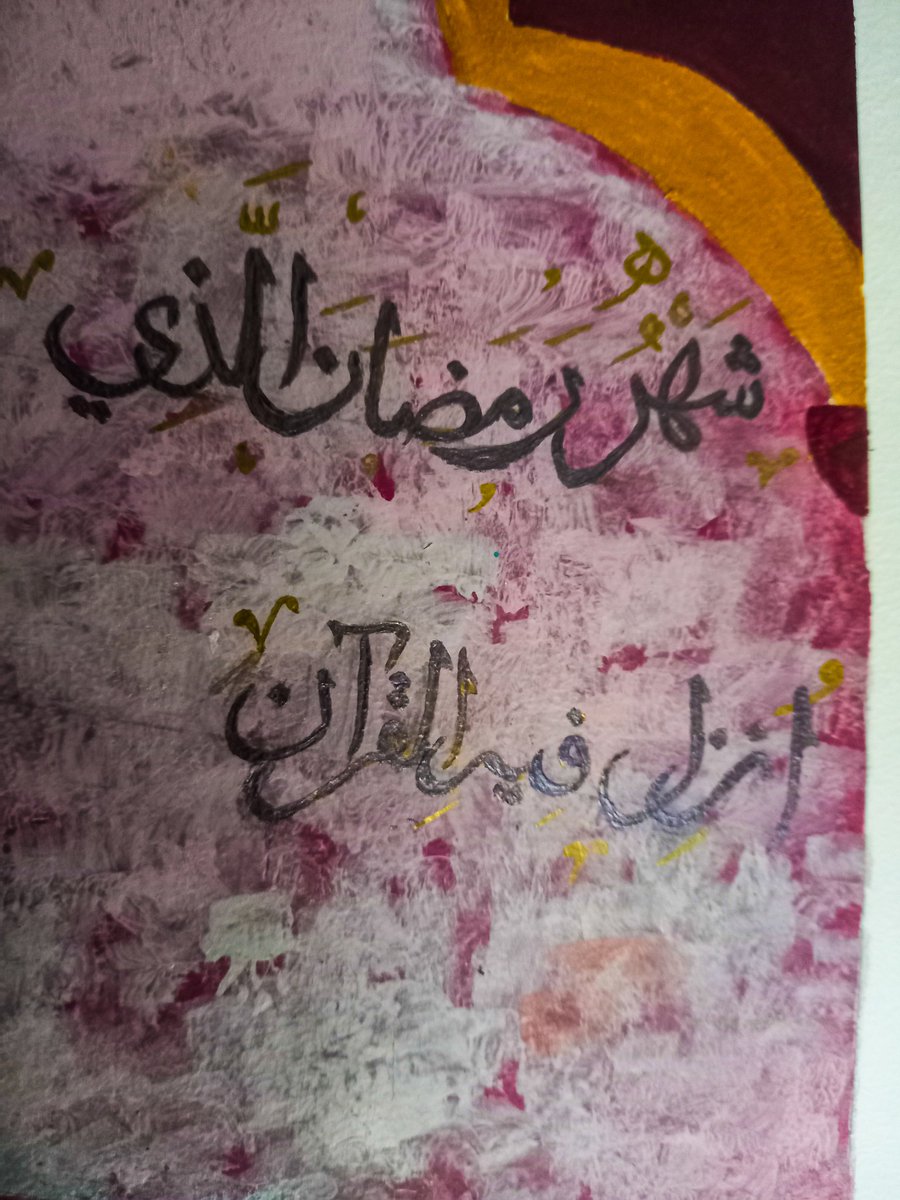 شَهْرُ رَمَضَانَ الَّذِي
اُنزِل فِيهِ القُرآن